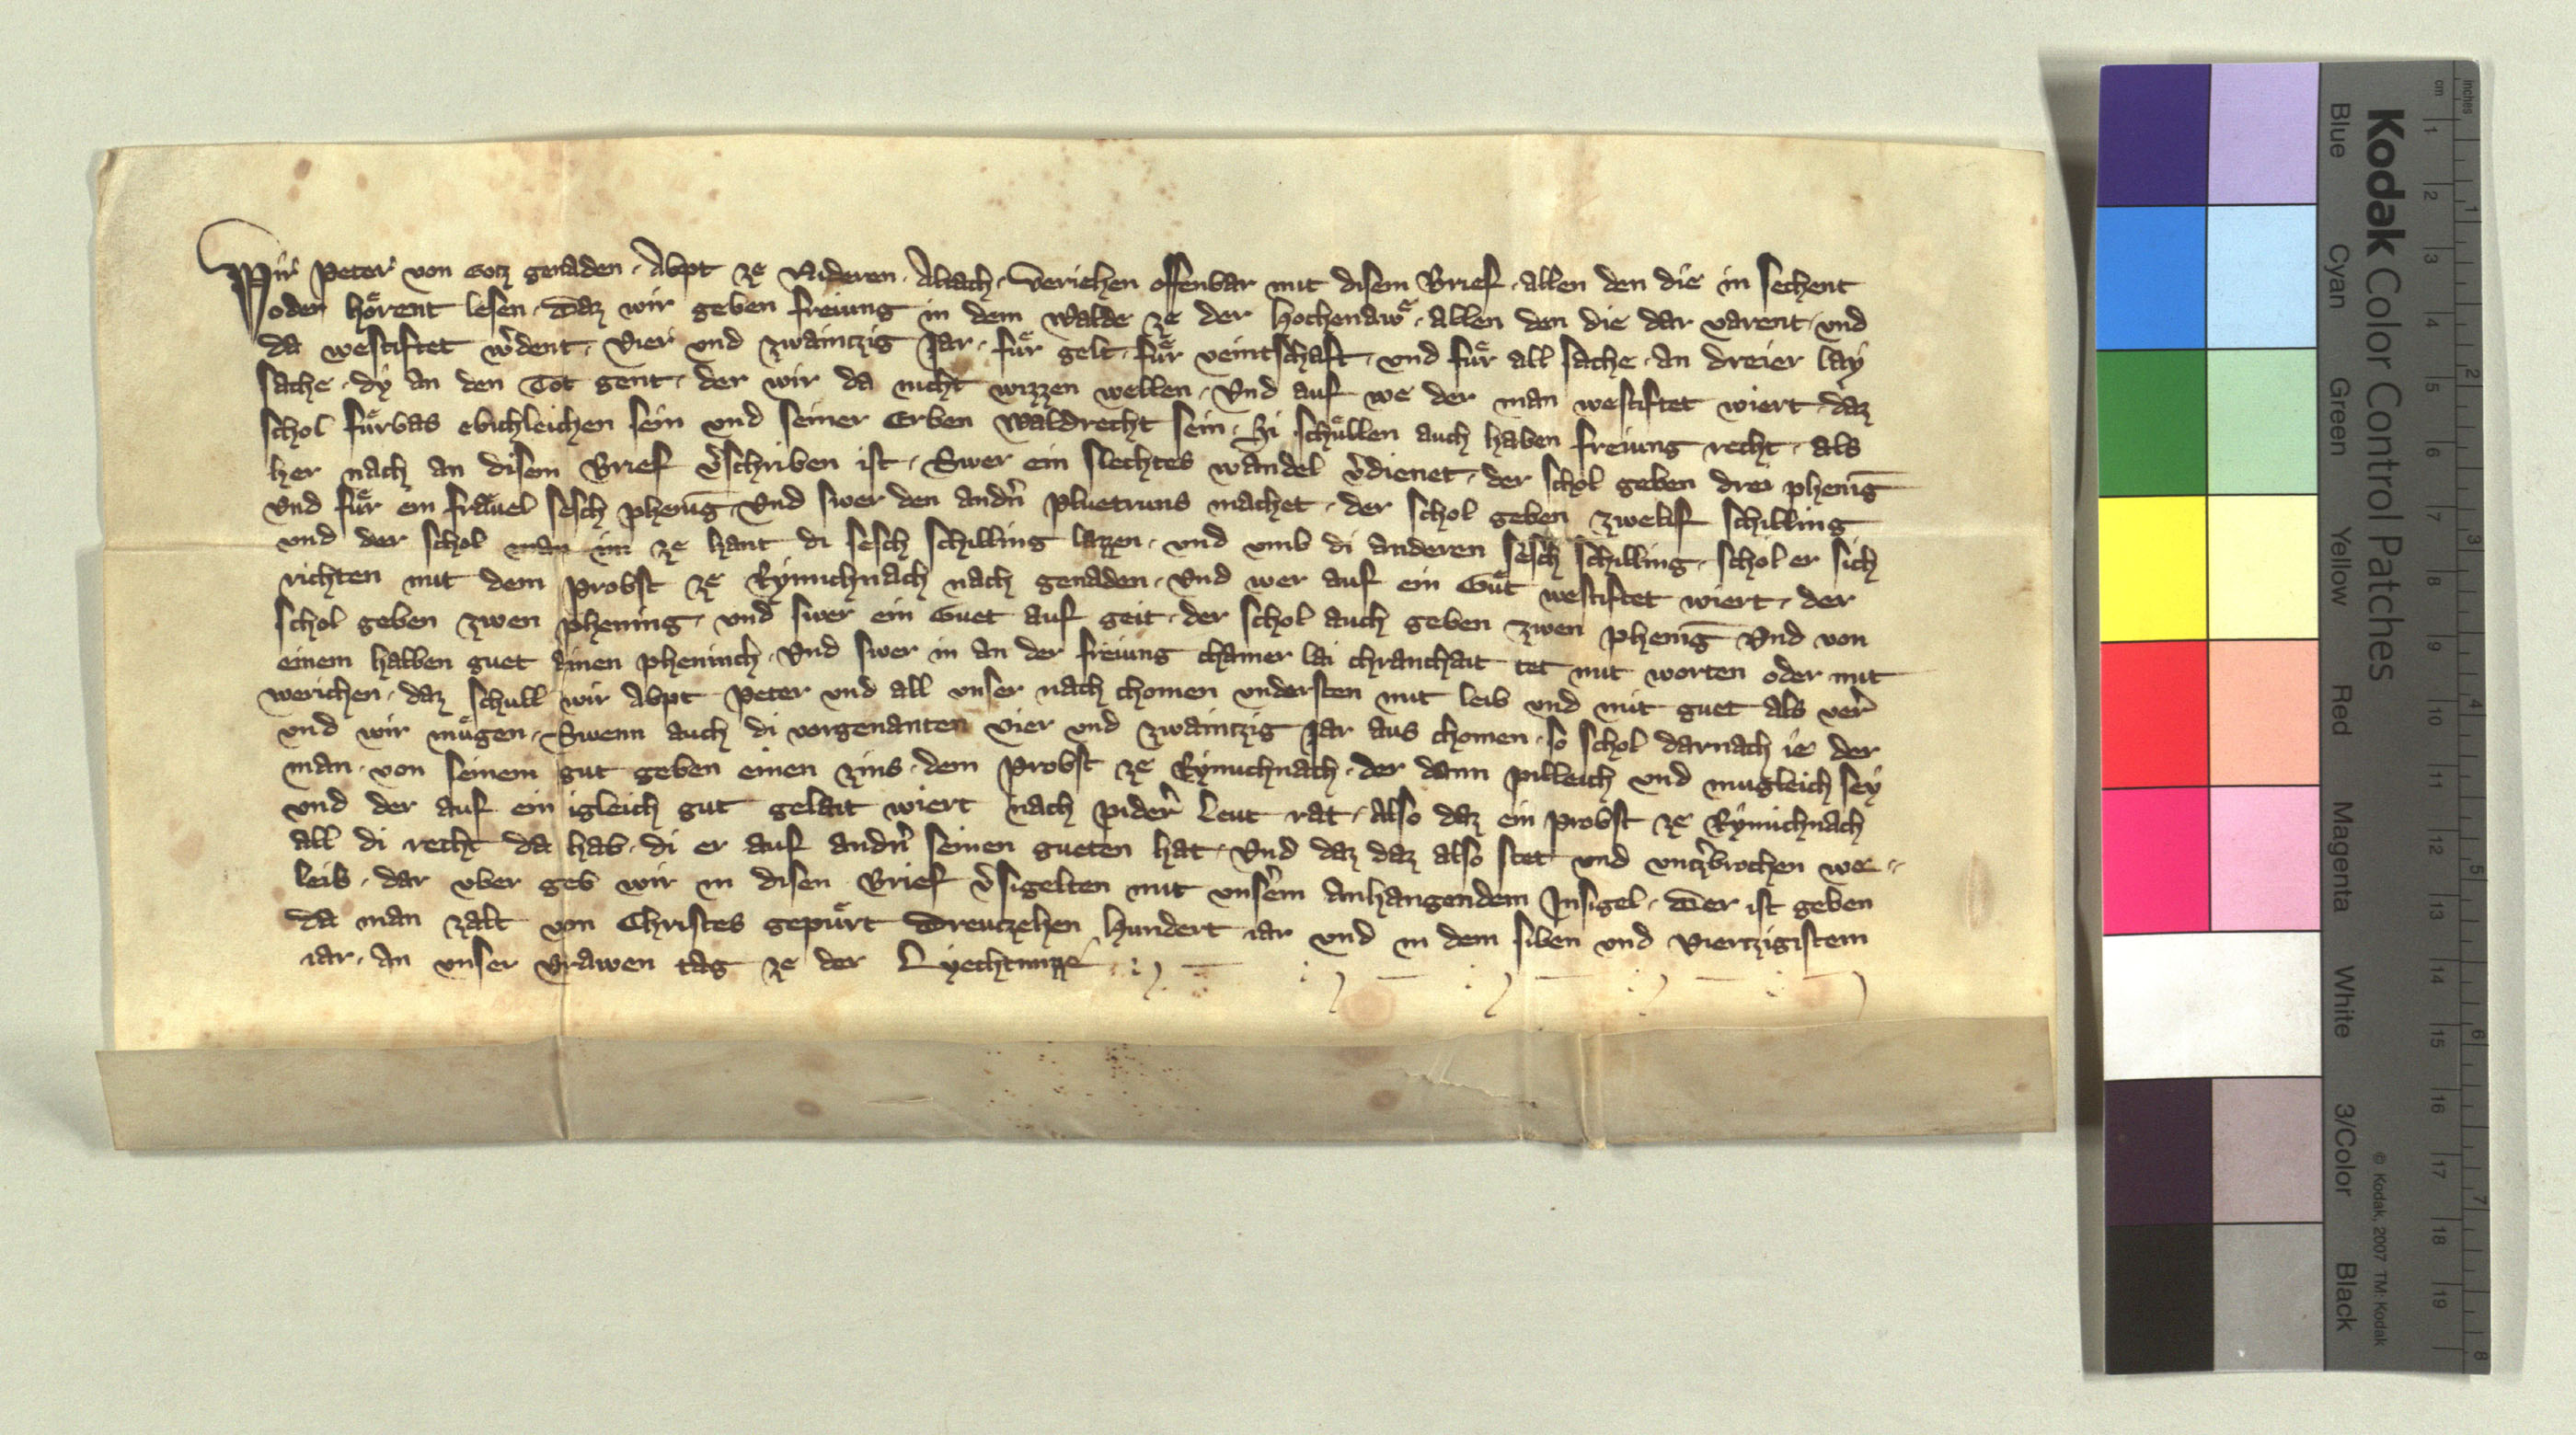 Wir Peter von Gotz genaden · Abpt ze Nideren · Altach · Veriehen offenbar mit disem Brief · allen den die in sechent
oder hoͤrent lesen · Daz wir geben freiung in dem Walde ze der Hochenawͤ · allen den die dar varent · und
da westiftet w̄dent · Vier und zwaintzig Jar · fuͤr gelt · fuͤr veintschaft · und fuͤr all sache · an dreier lay
sache · dy an den Tot gent · der wir da nicht wizzen wellen · Und auf we der man westiftet wiert · daz
schol fuͤrbas ebichleichen sein und seiner Erben Waldrecht sein · Si schuͤllen auch haben freiung recht · als
her nach an disem Brief v̄schriben ist · Swer ein slechtes wandel v̄dienet · der schol geben drei phenīg
Und fuͤr ein fraͤvel sesch phenīg · Und swer den andn̄ pluetruns machet · der schol geben zwelif schilling
und der schol man im ze hant di sesch schilling lazzen · und umb di anderen sesch schilling · schol er sich
richten mit dem Probst ze Rymichnach nach genaden · Und wer auf ein Guͤt westiftet wiert · der
schol geben zwen phening · und swer ein Guet auf geit · der schol auch geben zwen phenīg Und von
einem halben guet ainen pheninch · Und swer in an der freiung chainer lai chranchait tet mit worten oder mit
werichen · daz schull wir Abpt Peter und all unser nach chomen understen mit leib und mit guet als ver̄
und wir muͤgen · Swenn auch di vorgenanten vier und zwaintzig Jar aus chomen · so schol darnach ie der
man · von seinem gut geben einen zins · dem Probst ze Rymichnach · der dann pilleich und mugleich sey
und der auf ein igleich gut gelait wiert nach pider̄ Leut rat · Also daz ein Probst ze Rymichnach
all di recht da hab · di er auf andn̄ seinen gueten hat · Und daz daz also stet und untz̄brochen we=
leib · dar uber geb wir in disen Brief v̄sigelten mit unser̄m Anhangendem Insigel · Der ist geben
da man zalt von Christes gepuͤrt Dreutzehen Hundert iar und in dem siben und Viertzigistem
iar · An unser Vrawen tag ze der Lyechtmizze
Kodak Color Control Patches
Blue Cyan Green Yellow Red Magenta White 3/Color Black
© Kodak, 2007 TM: Kodak
inches 1 2 3 4 5 6 7 8
cm 1 2 3 4 5 6 7 8 9 10 11 12 13 14 15 16 17 18 19